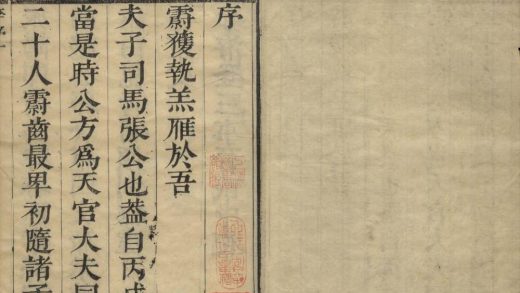 序
霨獲執羔雁於吾
夫子司馬張公也葢自丙戌
當是時公方爲天官大夫同
二十人霨齒最卑初隨諸子